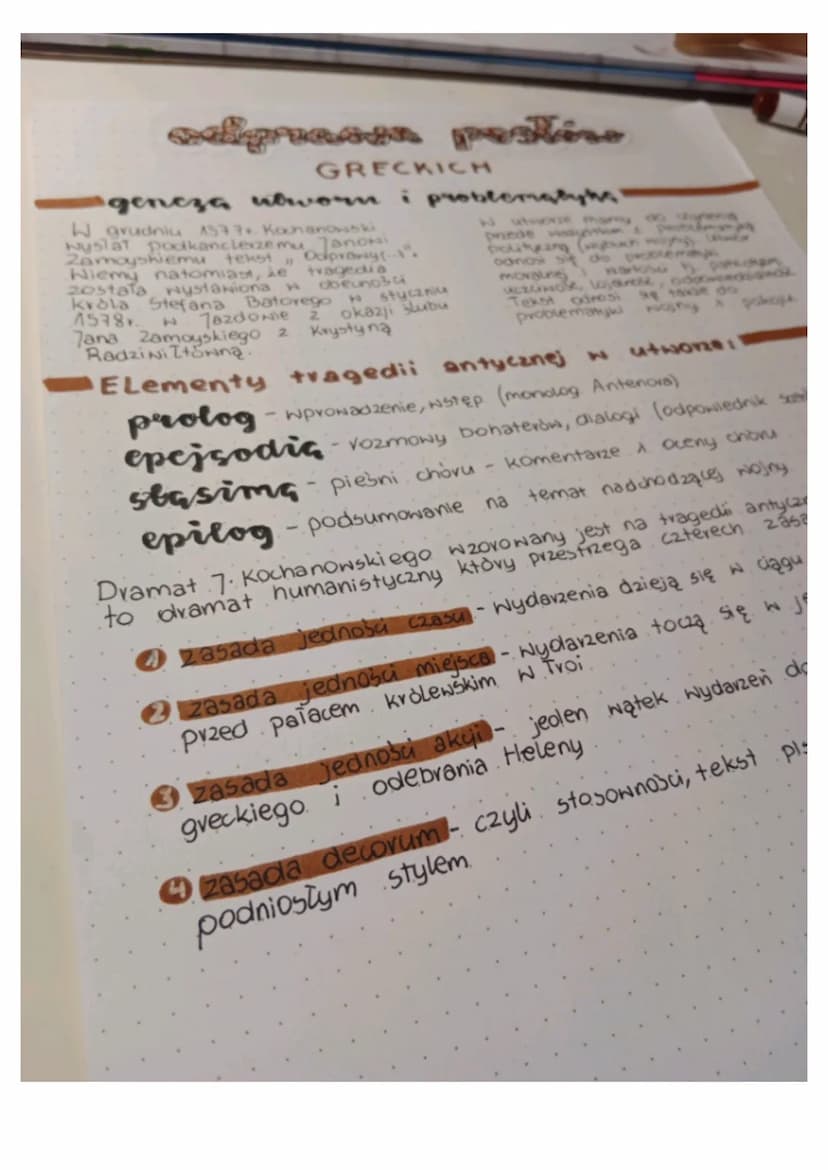 odprawa posłów
GRECKICH
geneza utworu i problematyka
W grudniu 1577r. Kochanowski
wysłał podkanclerzemu Janowi
Zamoyskiemu tekst „Odprawy(...)".
Wiemy natomiast, że tragedia
została wystawiona w obecności
króla Stefana Batorego w styczniu
1578r. w Jazdowie z okazji ślubu
Jana Zamoyskiego z Krystyną
Radziwiłłówną.
W utworze mamy do czynienia
przede wszystkim z problematyką
polityczną (wybuch wojny). Utwór
odnosi się do problematyki
moralnej i wartości tj. patriotyzm,
uczciwość, lojalność, odpowiedzialność
Tekst odnosi się także do
problematyki wojny i pokoju
Elementy tragedii antycznej w utworze:
prolog - wprowadzenie, wstęp (monolog Antenora)
epejsodia - rozmowy bohaterów, dialogi (odpowiednik
stasima - pieśni chóru - komentarze i oceny chóru
epilog - podsumowanie na temat nadchodzącej wojny
Dramat J. Kochanowskiego wzorowany jest na tragedii
to dramat humanistyczny który przestrzega czterech
1 zasada jedności czasu - wydarzenia dzieją się w ciągu
2 zasada jedności miejsca - wydarzenia toczą się w
przed pałacem królewskim w Troi
3 zasada jedności akcji - jeden wątek wydarzeń
greckiego i odebrania Heleny
4 zasada decorum - czyli stosowności, tekst
podniosłym stylem